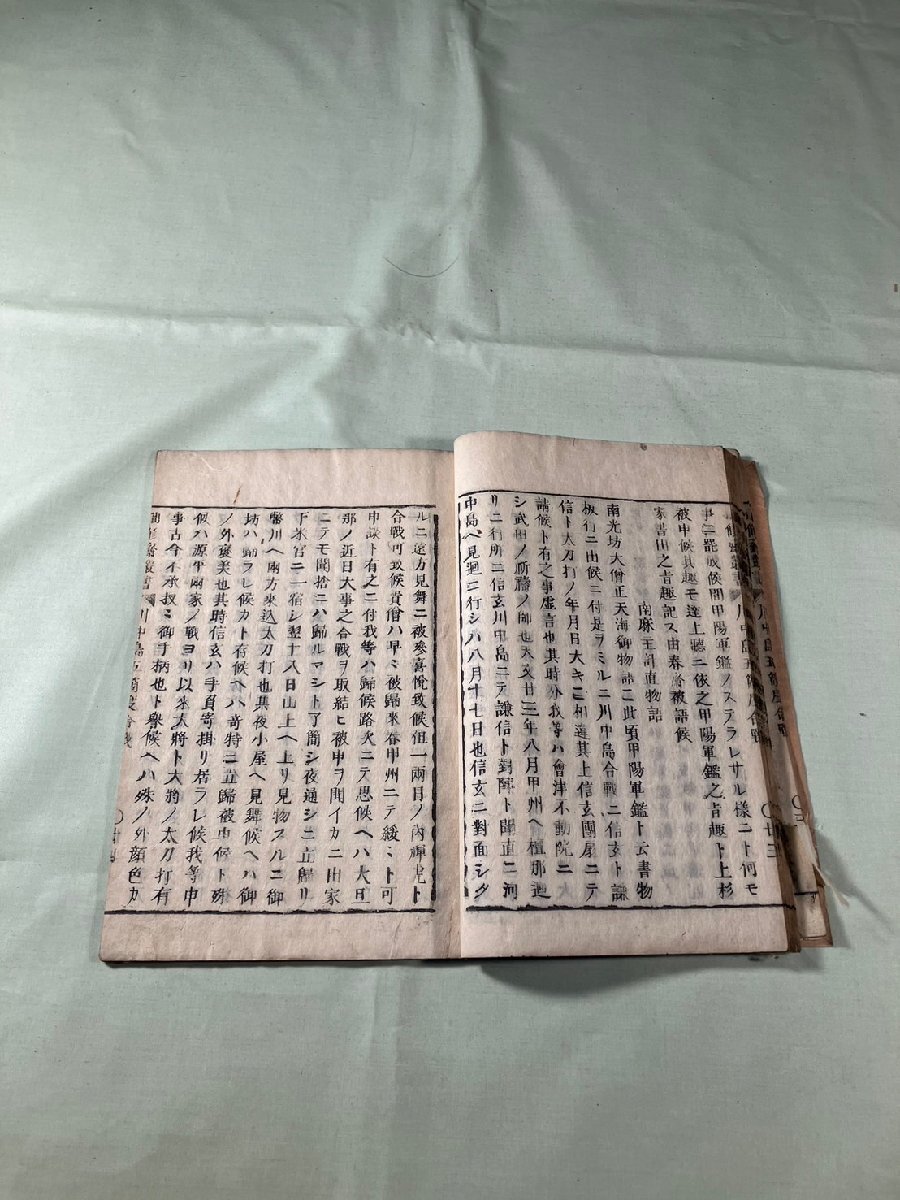 事ニ罷成候間甲陽軍鑑ノステラレサル様ニト何モ
被申候其趣モ達上聴ニ依之甲陽軍鑑之旨趣ト上杉
家書出之旨趣記ス由春斎被語候
南麻主計直物語
南光坊大僧正天海御物語ニ此頃甲陽軍鑑ト云書物
板行ニ出候ニ付是ヲミルニ川中島合戦ニ信玄ト謙
信ト太刀打ノ年月日大キニ相違其上信玄團扇ニテ
請候ト有之事虚言也其時分我等ハ會津不動院ニ
シ武田ノ祈祷ノ師也天文廿三年八月甲州ヘ檀那迴
リニ行所ニ信玄川中島ニテ謙信ト對陣ト聞直ニ河
中島ヘ見廻ニ行シハ八月十七日也信玄ニ對面シタ
ルニ遠方見舞ニ被參喜悅致候但一兩日ノ內輝虎ト
合戰可致候貴僧ハ早々被歸來春甲州ニテ緩々ト可
申談ト有之ニ付我等ハ歸候路次ニテ思候ヘハ大旦
那ノ近日大事之合戰ヲ取結ヒ被申ヲ聞イカニ出家
ニテモ聞捨ニハ歸ルマシト了簡シ夜通シニ立歸リ
下米宮ニ一宿シ翌十八日山上ヘ上リ見物スルニ御
幣川ヘ兩方乘込太刀打也其夜小屋ヘ見舞候ヘハ御
坊ハ歸ラレ候カト存候ヘハ奇特ニ立歸被申候ト殊
ノ外褒美也其時信玄ハ手負寄掛リ居ラレ候我等申
候ハ源平兩家ノ戰ヨリ以來大將ト大將ノ太刀打有
事古今不承扨々御手柄也ト譽候ヘハ殊ノ外顏色